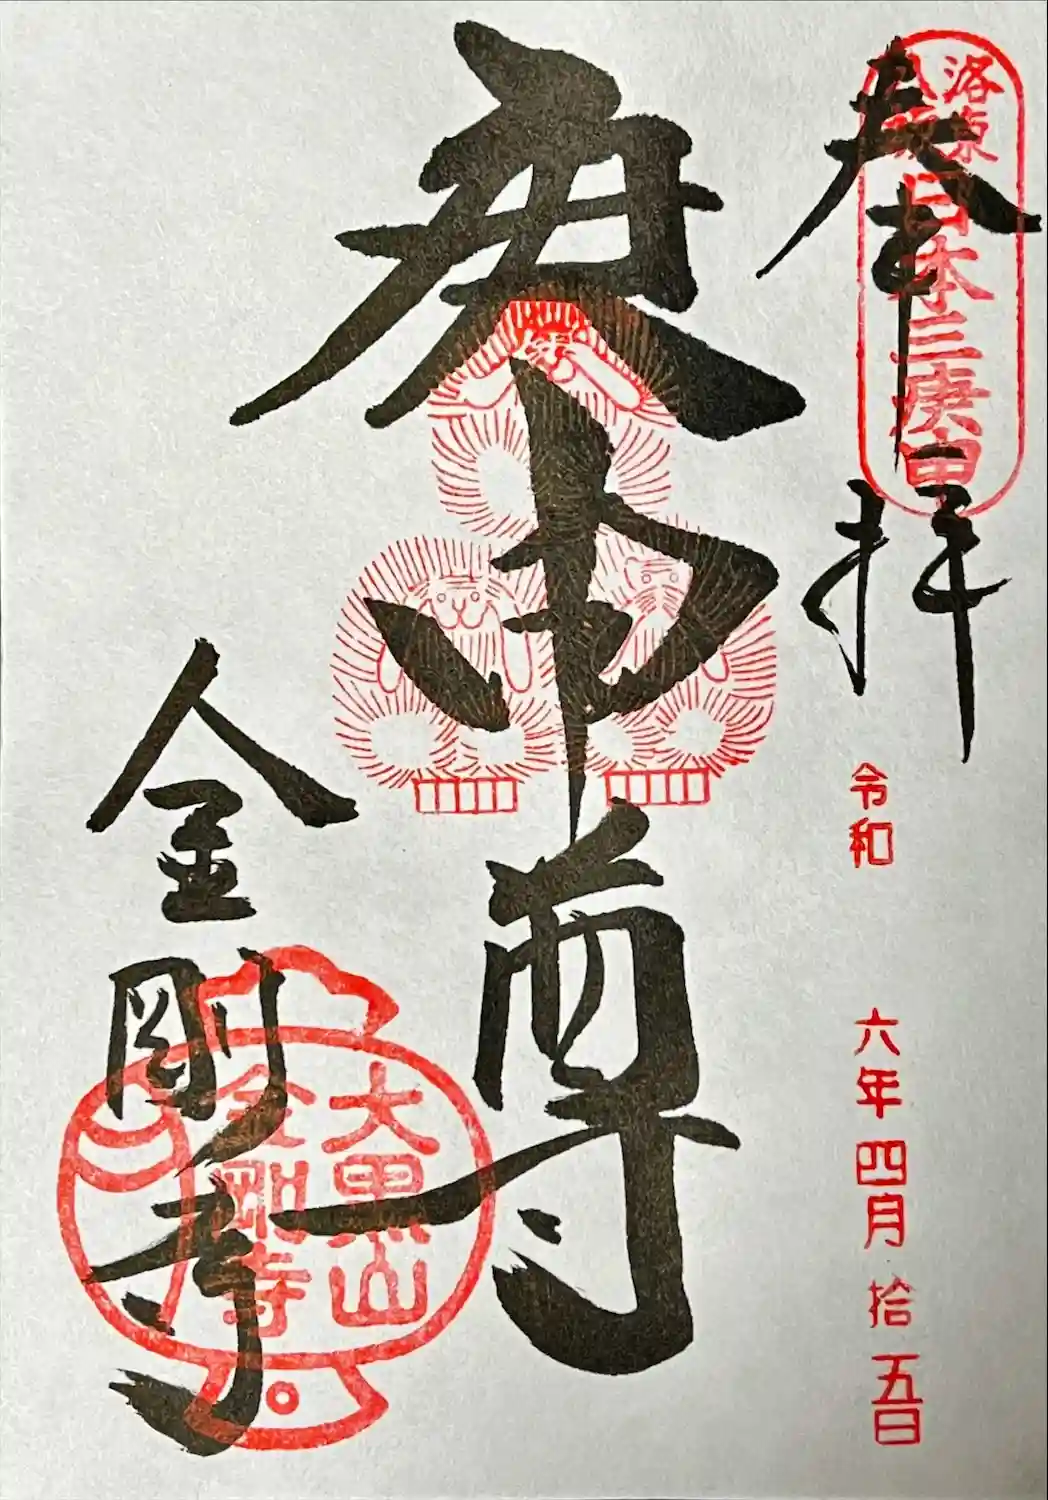 奉拝
洛東
八坂
日本三庚申
令和六年四月拾五日
庚申尊
金剛寺
大黒山
金剛寺